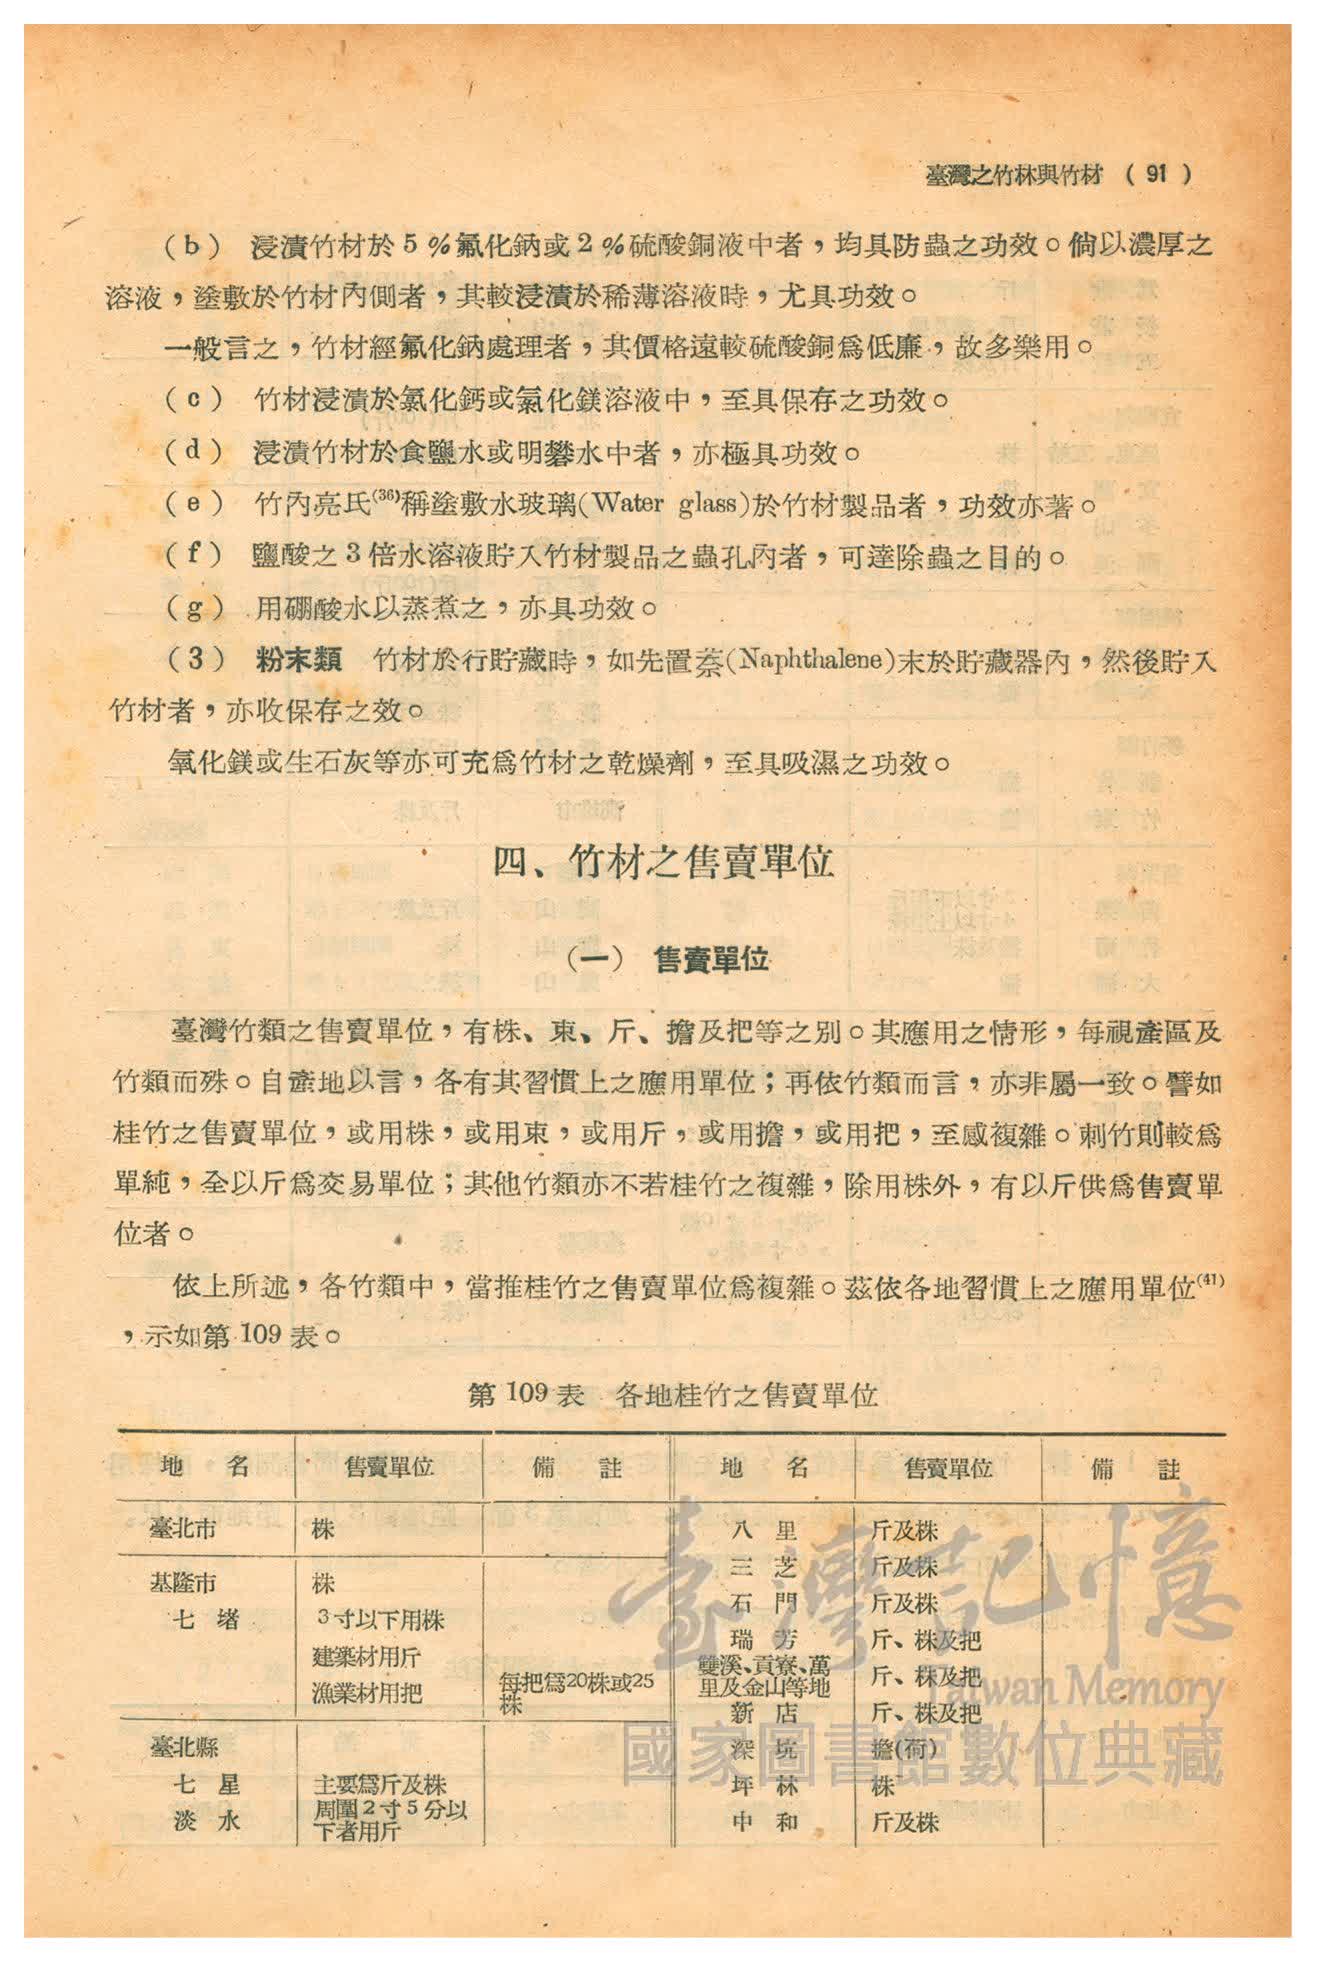 臺灣之竹林與竹材 ( 91 )
(b) 浸漬竹材於5%氟化鈉或2%硫酸銅液中者，均具防蟲之功效。倘以濃厚之
溶液，塗敷於竹材內側者，其較浸漬於稀薄溶液時，尤具功效。
一般言之，竹材經氟化鈉處理者，其價格遠較硫酸銅爲低廉，故多樂用。
(c) 竹材浸漬於氯化鈣或氯化鎂溶液中，至具保存之功效。
(d) 浸漬竹材於食鹽水或明礬水中者，亦極具功效。
(e) 竹內亮氏(36)稱塗敷水玻璃(Water glass)於竹材製品者，功效亦著。
(f) 鹽酸之3倍水溶液貯入竹材製品之蟲孔內者，可達除蟲之目的。
(g) 用硼酸水以蒸煮之，亦具功效。
(3) 粉末類 竹材於行貯藏時，如先置萘(Naphthalene)末於貯藏器內，然後貯入
竹材者，亦收保存之效。
氧化鎂或生石灰等亦可充爲竹材之乾燥劑，至具吸濕之功效。
四、竹材之售賣單位
(一) 售賣單位
臺灣竹類之售賣單位，有株、束、斤、擔及把等之別。其應用之情形，每視產區及
竹類而殊。自產地以言，各有其習慣上之應用單位；再依竹類而言，亦非屬一致。譬如
桂竹之售賣單位，或用株，或用束，或用斤，或用擔，或用把，至感複雜。刺竹則較爲
單純，全以斤爲交易單位；其他竹類亦不若桂竹之複雜，除用株外，有以斤供爲售賣單
位者。
依上所述，各竹類中，當推桂竹之售賣單位爲複雜。茲依各地習慣上之應用單位(41)
，示如第109表。
第109表 各地桂竹之售賣單位
地名 售賣單位 備註 地名 售賣單位 備註
臺北市 株
基隆市 株
七堵 3寸以下用株
建築材用斤
漁業材用把 每把爲20株或25
株
臺北縣
七星 主要爲斤及株
淡水 周圍2寸5分以
下者用斤
八里 斤及株
三芝 斤及株
石門 斤及株
瑞芳 斤、株及把
雙溪、貢寮、萬
里及金山等地 斤、株及把
新店 斤、株及把
深坑 擔(荷)
坪林 株
中和 斤及株
臺灣記憶
Taiwan Memory
國家圖書館數位典藏